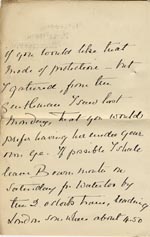 if you would like that
mode of protection - but
I gathered from the
gentleman I saw last
Monday, that you would
prefer having her under your
own eye. If possible I shall
leave
on
Saturday for Waterloo by
the 2 o'clock train, reaching
London somewhere about 4.50